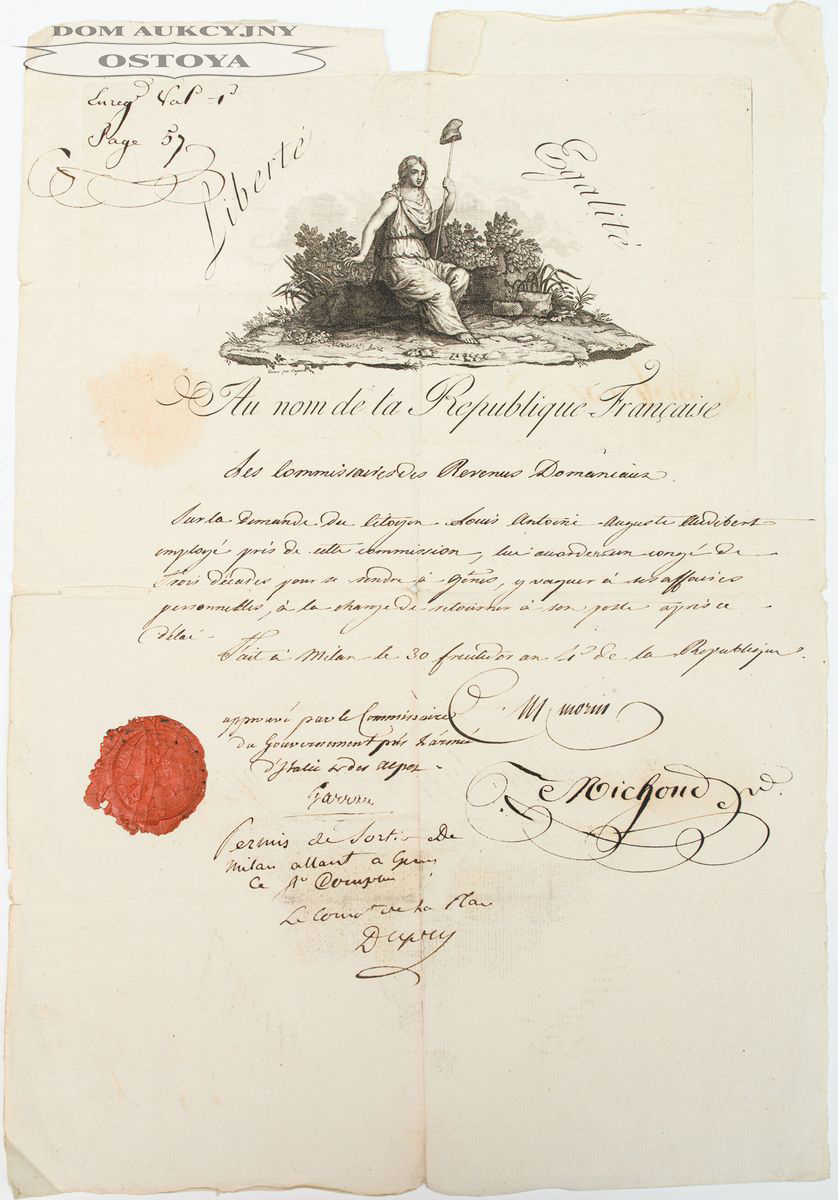 DOM AUKCYJNY
OSTOYA
Page 57
Liberté
Egalité
Au nom de la Republique Française
Les Commissaires des Revenus Domaniaux.
Sur la demande du Citoyen Louis Antoine Auguste Audibert
employé près de cette commission, lui accordons un congé de
Trois décades pour se rendre à Gênes, y vaquer à ses affaires
personnelles, à la charge de retourner à son poste après ce
délai
Fait à Milan le 30 fructidor an 4e de la Republique.
approuvé par le Commissaire
du Gouvernement près l'armée
d'Italie & des alpes
Garrau
Michoud
Permis de Sortir De
Milan allant a
Ce
Le de la Place
Dupuy